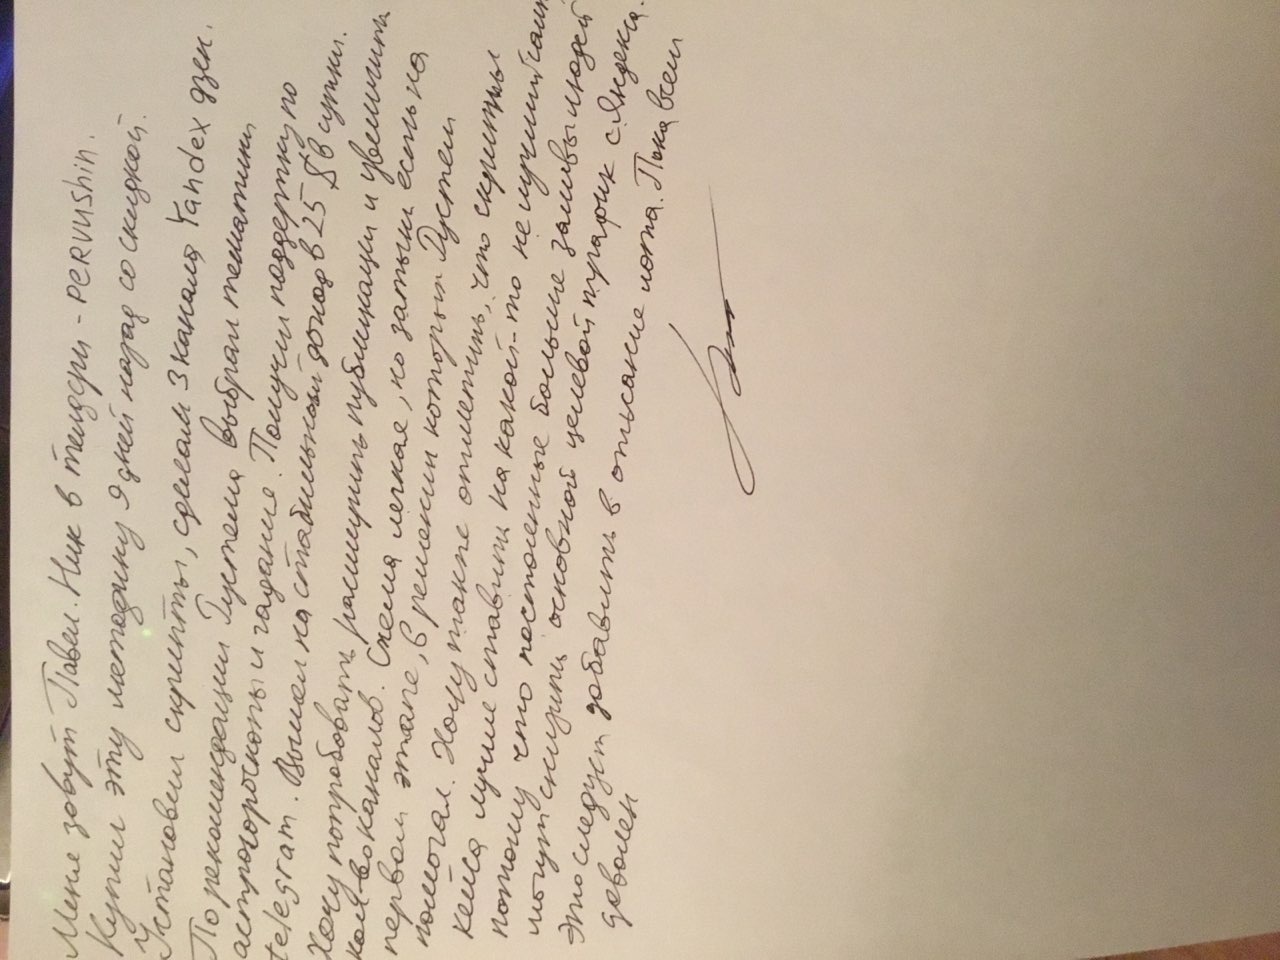 Меня зовут Павел. Ник в телдери - pervushin.
Купил эту методику 9 дней назад со скидкой.
Установил скрипты, сделал 3 канала Yandex дзен.
По рекомендации Рустема выбрал тематики
астрогороскопы и гадание. Получил поддержку по
telegram. Вышел на стабильный доход в 25 $ в сутки.
Хочу попробовать расширить публикации и увеличить
кол-во каналов. Схема легкая, но затыки есть на
первом этапе, в решении которых Рустем
помогал. Хочу также отметить, что скрипты
кейса лучше ставить на какой-то не лучший хостинг,
потому что постоянные большие заливы людей
могут снизить основной целевой трафик с Яндекса.
Это следует добавить в описание лота. Пока всем
доволен